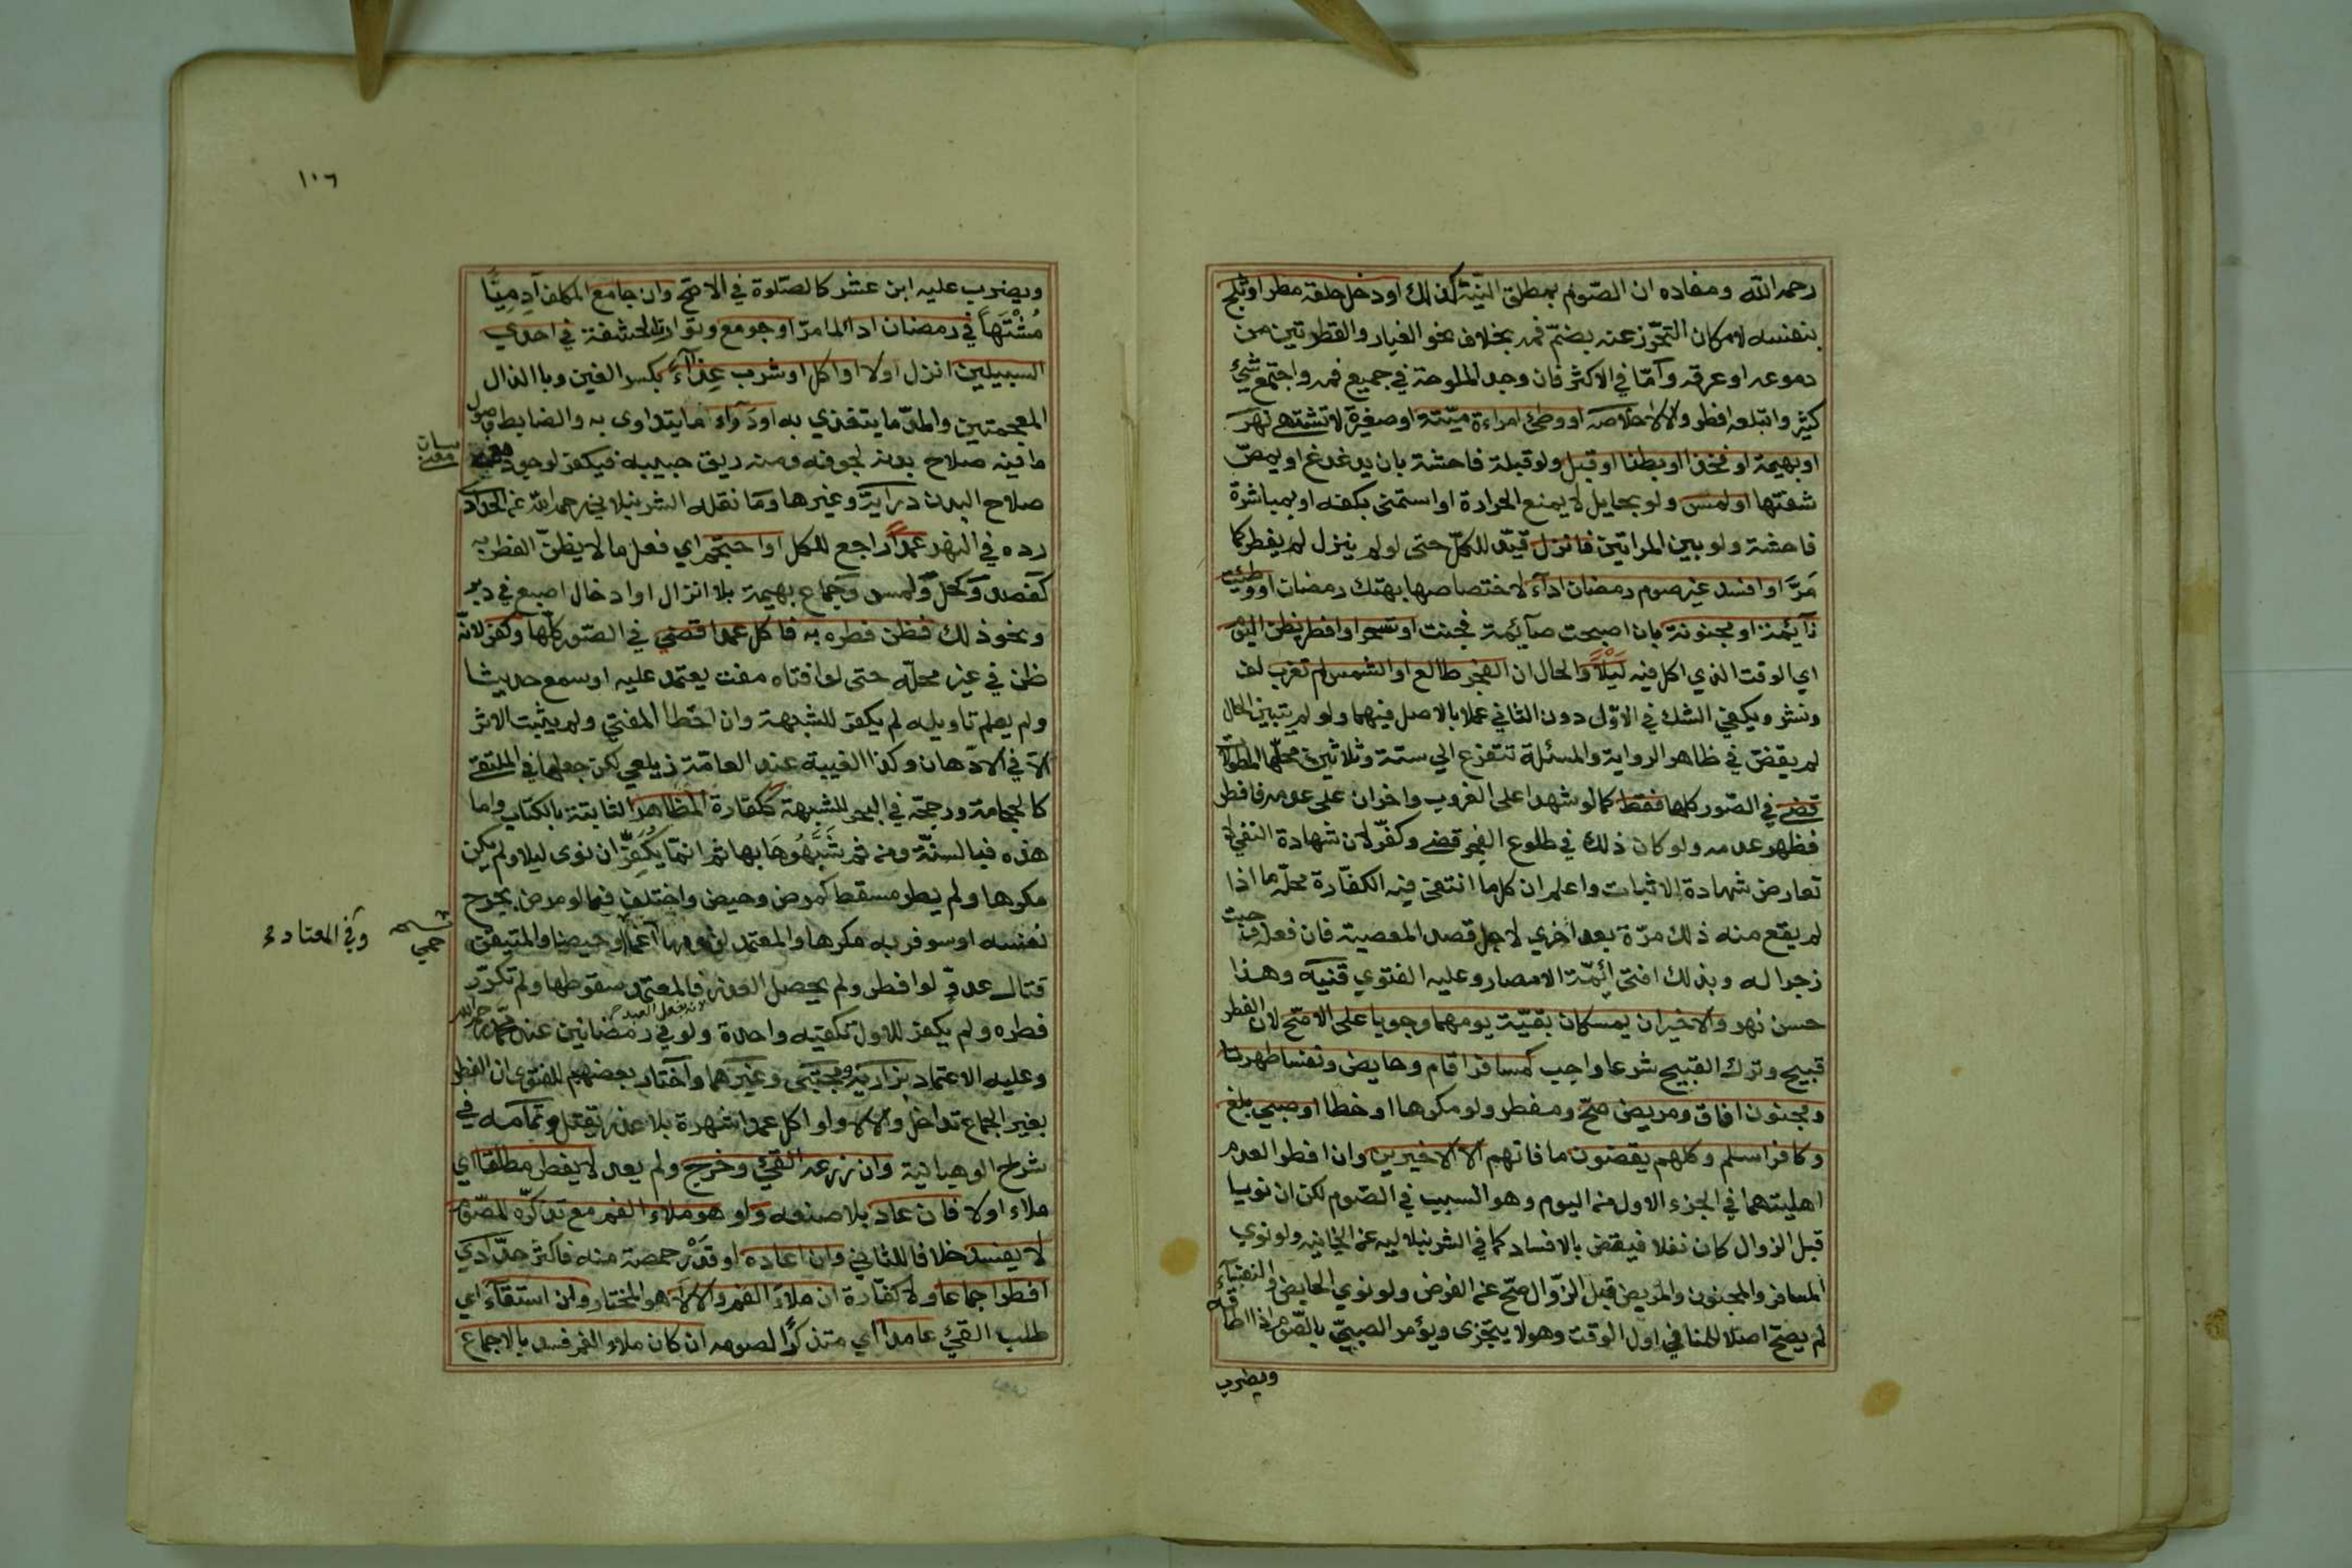 رحمه الله ومفاده ان الصّوم بمطلق النيّة كذلك او دخل حلقه مطر او ثلج
بنفسه لامكان التحّرز عنه بضمّ فمه بخلاف نحو الغبار والقطرتين من
دموعه او عرقه وآمّا في الاكثر فان وجد الملوحة في جميع فمه واجتمع شيئ
كثير وابتلعه افطر والا لا خلاصه او وطئ امراءة ميّتة او صغيرة لا تشتهي نهر
او بهيمة او فخذا او بطنا او قبل ولو قبلة فاحشة بان يدغدغ او يمصّ
شفتها او لمس ولو بحايل لا يمنع الحرارة او استمنى بكفه او بمباشرة
فاحشة ولو بين المراتين فانزل قيّد للكلّ حتى لو لم ينزل لم يفطر كما
مَرّ او افسد غير صوم رمضان ادآء لاختصاصها بهتك رمضان او وطئت
نآيئمة او مجنونة بان اصبحت صآيئمة فجنت او تسحر او افطر يظن اليوم
اي الوقت الذي اكل فيه لَيْلًا والحال ان الفجر طالع او الشمس لم تغرب لف
ونشر ويكفي الشك في الاوّل دون الثاني عملا بالاصل فيهما ولو لم يتبين الحال
لم يقض في ظاهر الرواية والمسئلة تتفرع الي ستة وثلاثين محلّها المطوّلات
قضي في الصّور كلها فقط كما لو شهدا على الغروب واخران على عدمه فافطر
فظهر عدمه ولو كان ذلك في طلوع الفجر قضي وكفّر لان شهادة النفي لا
تعارض شهادة الاثبات واعلم ان كل ما انتفي فيه الكفّارة محلّه ما اذا
لم يقع منه ذلك مرّة بعد اخري لاجل قصد المعصية فان فعله وجبت
زجرا له وبذلك افتى ائِمّة الامصار وعليه الفتوي قنيه وهذا
حسن نهر والاخيران يمسكان بقيّة يومهما وجوبا على الاصّح لان الفطر
قبيح وترك القبيح شرعا واجب كمسافر اقام وحايض ونفسا طهرتا
ومجنون افاق ومريض صحّ ومفطر ولو مكرها او خطا او صبي بلغ
وكافر اسلم وكلهم يقضون ما فاتهم الا الاخيرين وان افطر العدم
اهليتهما في الجزء الاول من اليوم وهو السبب في الصّوم لكن ان نويا
قبل الزوال كان نفلا فيقض بالافساد كما في الشرنبلاليه عن الخانيه ولو نوي
المسافر والمجنون والمريض قبل الزّوال صّح عن الفرض ولو نوي الحايض والنفسآء
لم يصحّ اصلا للمنافي اول الوقت وهو لا يتجّزى ويؤمر الصبيّ بالصّوم اذا اطاقه
ويضرب
١٠٦
ويضرب عليه ابن عشر كالصّلوة في الاصّح وان جامع المكلف آدمِيّا
مُشْتَهاً في رمضان ادا لما مرّ او جومع وتوارت الحشفة في احدي
السبيلين انزل اولا او اكل او شرب غذآءً بكسر الغين وبا الذال
المعجمتين والمدّ ما يتغذي به او دَوآء ما يتداوى به والضابط وصول
ما فيه صلاح بدنه لجوفه ومنه ريق حبيبه فيكفر لوجود معني
صلاح البدن درآيَة وغيرها ومَا نقله الشرنبلالي رحمه الله عن الحدّاد
رده في النهر عَمْداً راجع للكل او احتجّم اي فعل ما لا يظنّ الفطر به
كفصد وَكحل وَلمس وَجماع بهيمة بلا انزال او ادخال اصبع في دبر
ونحو ذلك فظن فطره به فاكل عمدا قضي في الصّور كلّها وكفر لانّه
ظن في غير محلّه حتى لو افتاه مفت يعتمد عليه او سمع حديثا
ولم يعلم تاويله لم يكفر للشبهة وان اخطا المفتي ولم يثبت الاثر
الآ في الادّهان وكذا الغيبة عند العامّة زيلعي لكن جعلها في الملتقي
كالحجامة ورجحّه في البحر للشبهة ككفارة المظاهر الثابتة بالكتاب واما
هذه فبالسنّة ومن ثم شَبَّهُوهَا بها ثم انمّا يكفِّر ان نوى ليلا ولم يكن
مكرها ولم يطر مسقط كمرض وحيض واختلف فيما لو مرض بجرح
نفسه او سوفر به مكرها والمعتمد لزومها وحيضا والمتيقن
قتال عدوّ لو افطر ولم يحصل العذر فالمعتمد سقوطها ولم تكرّر
فطره ولم يكفر للاول تكفيه واحدة ولو في رمضانين عند محّمد رحمه الله
وعليه الاعتماد بزازية ومجتبى وغيرهما واختار بعضهم للفتوى ان الفطر
بغير الجماع تداخل والا لا ولو اكل عمدا شهرة بلا عذر يقتل وتمآمه في
شرح الوهبانية وان زرعه القئ وخرج ولم يعد لا يفطر مطلقا اي
ملاء اولا فان عاد بلا صنعه وَلو هو ملاء الفم مع تذكرّه للصّوم
لا يفسد خلافا للثاني وان اعاده او قَدْر حمصة منه فاكثر حدّادي
افطر اجماعا ولا كفّارة ان ملآء الفم والا لآ هو المختار وان استقآء اي
طلب القئ عامدا اي متذكرًا لصومه ان كان ملاء الفم فسد بالاجماع
وفي المعتاد